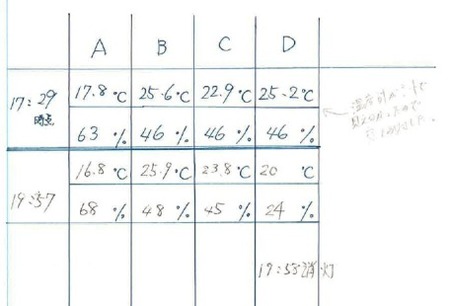 A B C D
17:29 17.8℃ 25.6℃ 22.9℃ 25.2℃
時点 63 % 46 % 46 % 46 %
19:57 16.8 ℃ 25.9℃ 23.8℃ 20 ℃
68 % 48 % 45 % 24 %
19:58消灯